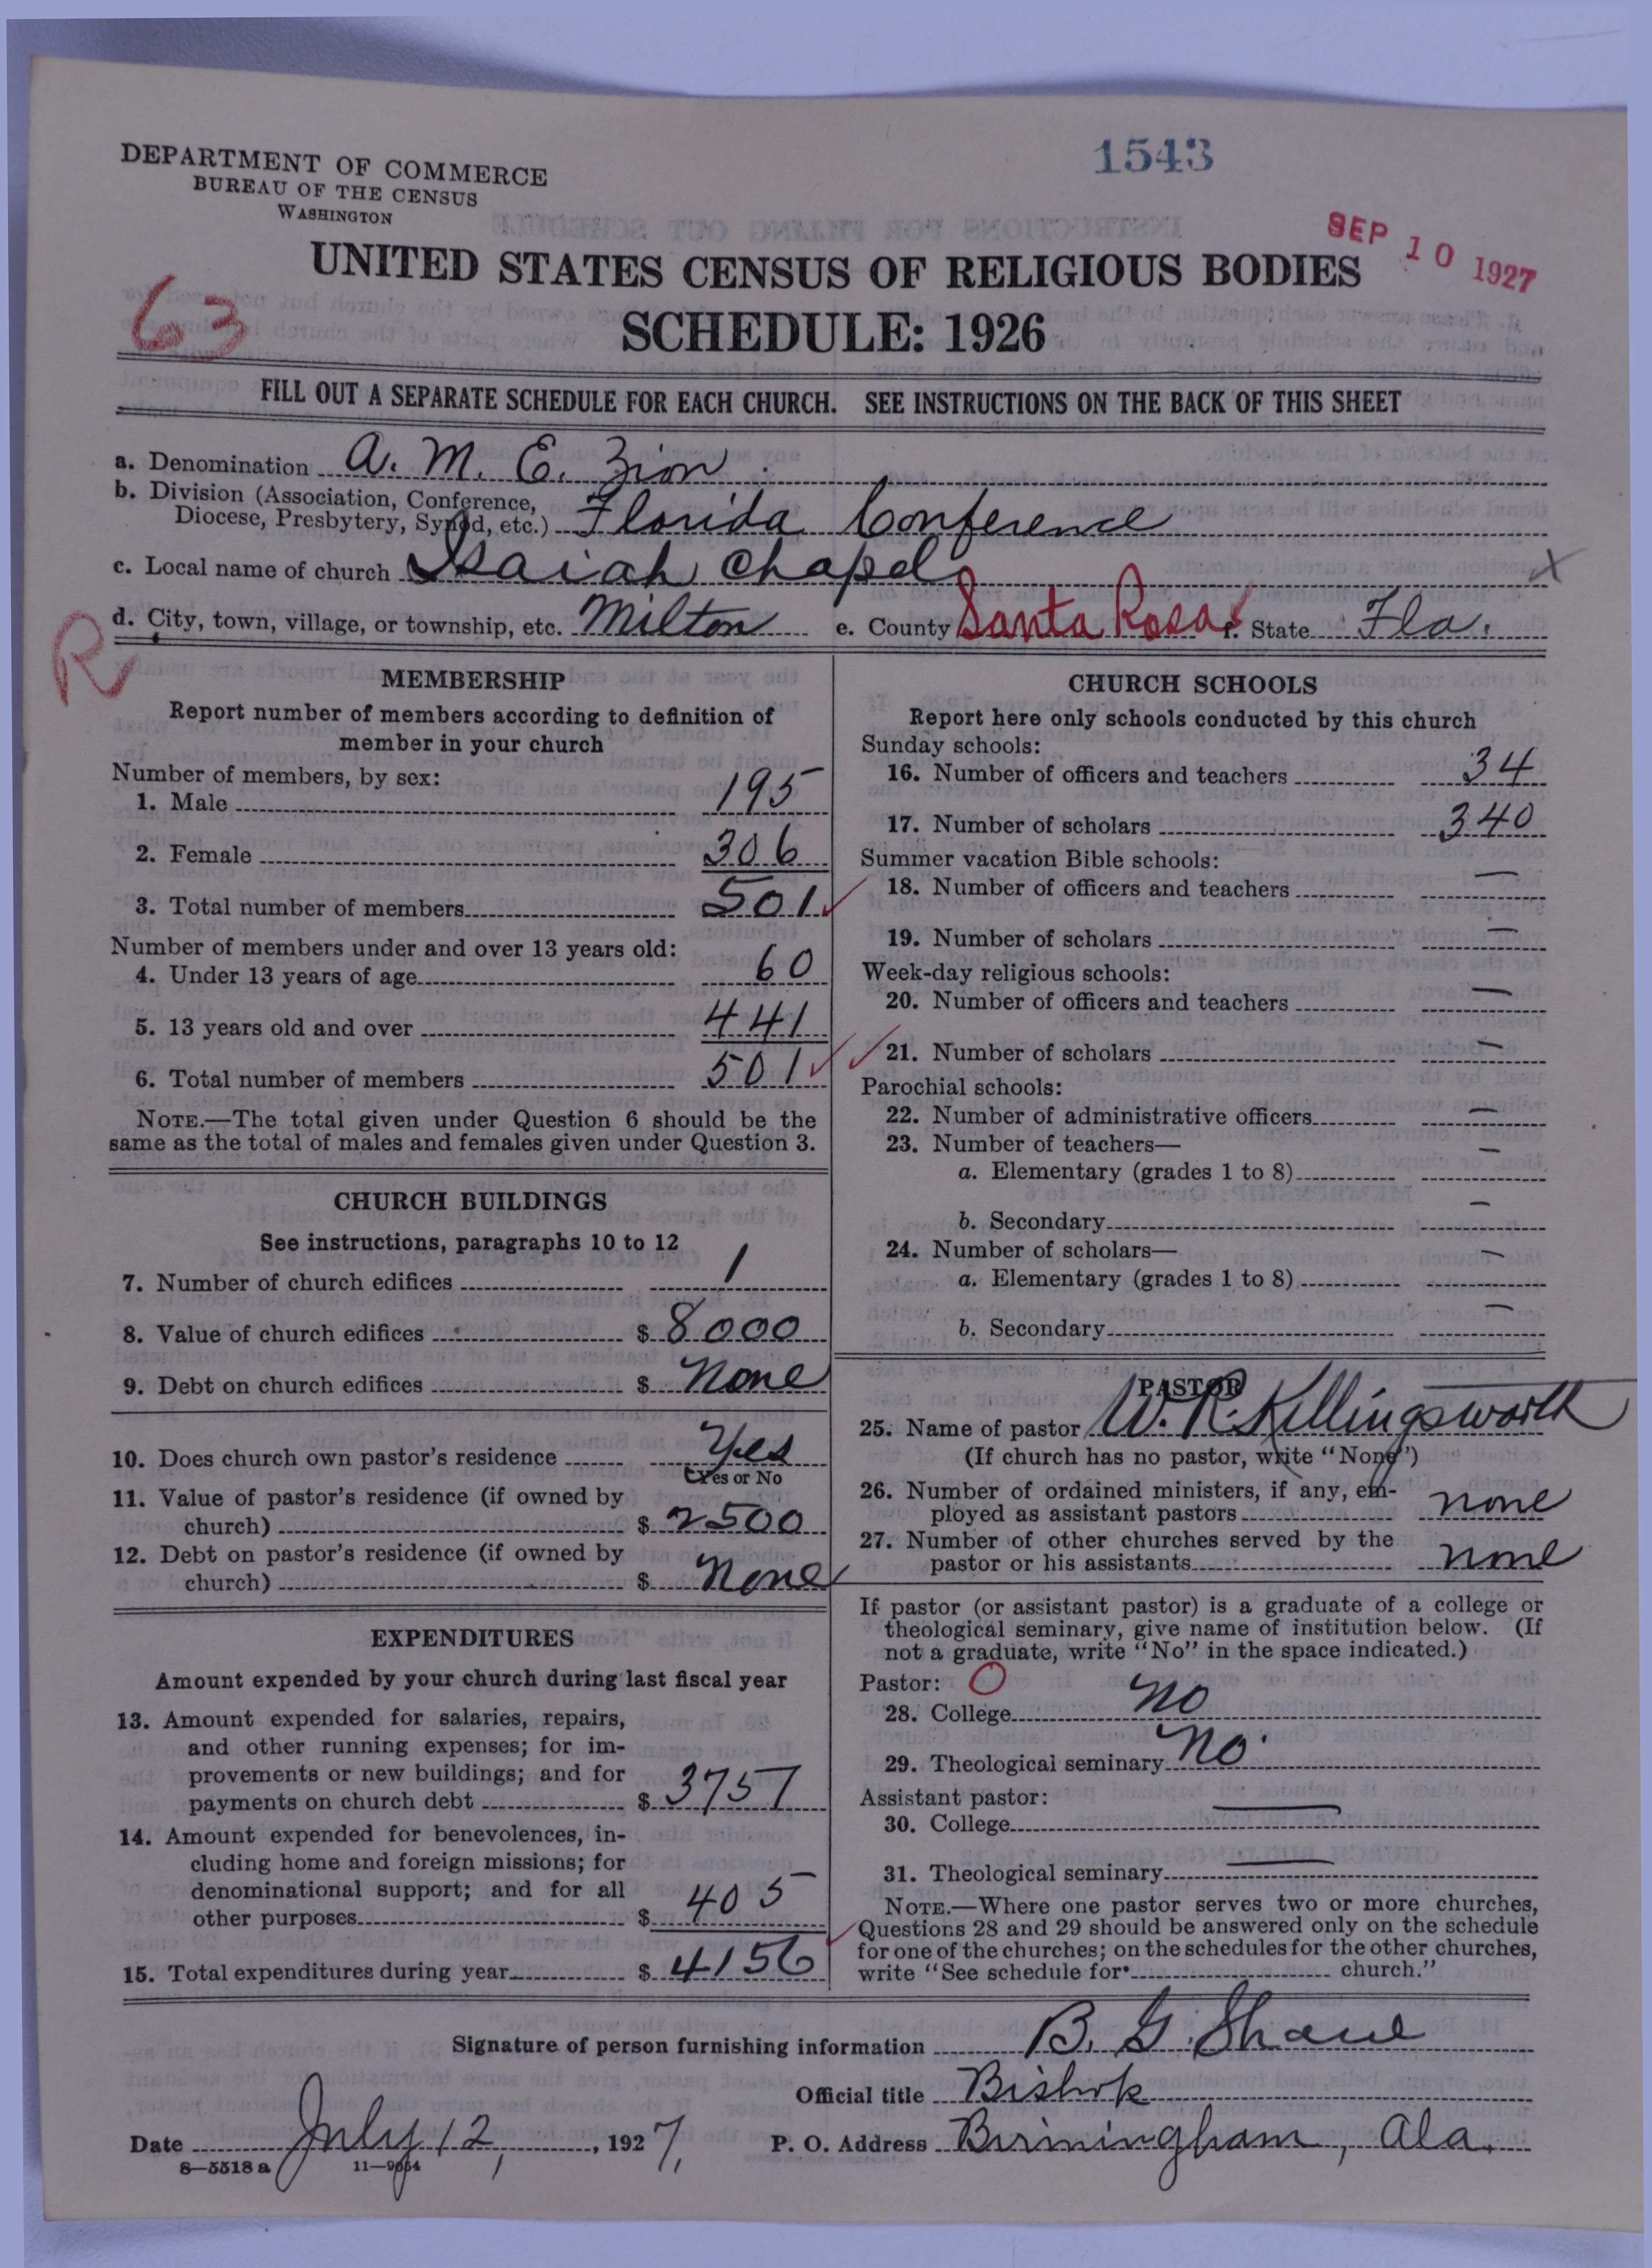 1543
DEPARTMENT OF COMMERCE
BUREAU OF THE CENSUS
WASHINGTON
SEP 10 1927
UNITED STATES CENSUS OF RELIGIOUS BODIES
63
SCHEDULE: 1926
FILL OUT A SEPARATE SCHEDULE FOR EACH CHURCH. SEE INSTRUCTIONS ON THE BACK OF THIS SHEET
a. Denomination A. M. E. Zion
b. Division (Association, Conference,
Diocese, Presbytery, Synod, etc.) Florida Conference
c. Local name of church Isaiah Chapel X
d. City, town, village, or township, etc. Milton e. County Santa Rosa f. State Fla.
R
MEMBERSHIP
Report number of members according to definition of
member in your church
Number of members, by sex:
1. Male 195
2. Female 306
3. Total number of members 501
Number of members under and over 13 years old:
4. Under 13 years of age 60
5. 13 years old and over 441
6. Total number of members 501
NOTE.—The total given under Question 6 should be the
same as the total of males and females given under Question 3.
CHURCH BUILDINGS
See instructions, paragraphs 10 to 12
7. Number of church edifices 1
8. Value of church edifices $ 8000
9. Debt on church edifices $ None
10. Does church own pastor's residence Yes
(Yes or No
11. Value of pastor's residence (if owned by
church) $ 2500
12. Debt on pastor's residence (if owned by
church) $ None
EXPENDITURES
Amount expended by your church during last fiscal year
13. Amount expended for salaries, repairs,
and other running expenses; for im-
provements or new buildings; and for
payments on church debt $ 3757
14. Amount expended for benevolences, in-
cluding home and foreign missions; for
denominational support; and for all
other purposes $ 405
15. Total expenditures during year $ 4156
CHURCH SCHOOLS
Report here only schools conducted by this church
Sunday schools:
16. Number of officers and teachers 34
17. Number of scholars 340
Summer vacation Bible schools:
18. Number of officers and teachers —
19. Number of scholars —
Week-day religious schools:
20. Number of officers and teachers —
21. Number of scholars —
Parochial schools:
22. Number of administrative officers —
23. Number of teachers—
a. Elementary (grades 1 to 8) —
b. Secondary —
24. Number of scholars—
a. Elementary (grades 1 to 8) —
b. Secondary —
PASTOR
25. Name of pastor W. R. Killingsworth
(If church has no pastor, write "None")
26. Number of ordained ministers, if any, em-
ployed as assistant pastors none
27. Number of other churches served by the
pastor or his assistants none
If pastor (or assistant pastor) is a graduate of a college or
theological seminary, give name of institution below. (If
not a graduate, write "No" in the space indicated.)
Pastor: O
28. College No
29. Theological seminary No.
Assistant pastor:
30. College —
31. Theological seminary —
NOTE.—Where one pastor serves two or more churches,
Questions 28 and 29 should be answered only on the schedule
for one of the churches; on the schedules for the other churches,
write "See schedule for church."
Signature of person furnishing information B. G. Shaw
Official title Bishop
Date July 12, 1927, P. O. Address Birmingham, Ala.
8—5518 a 11—9054